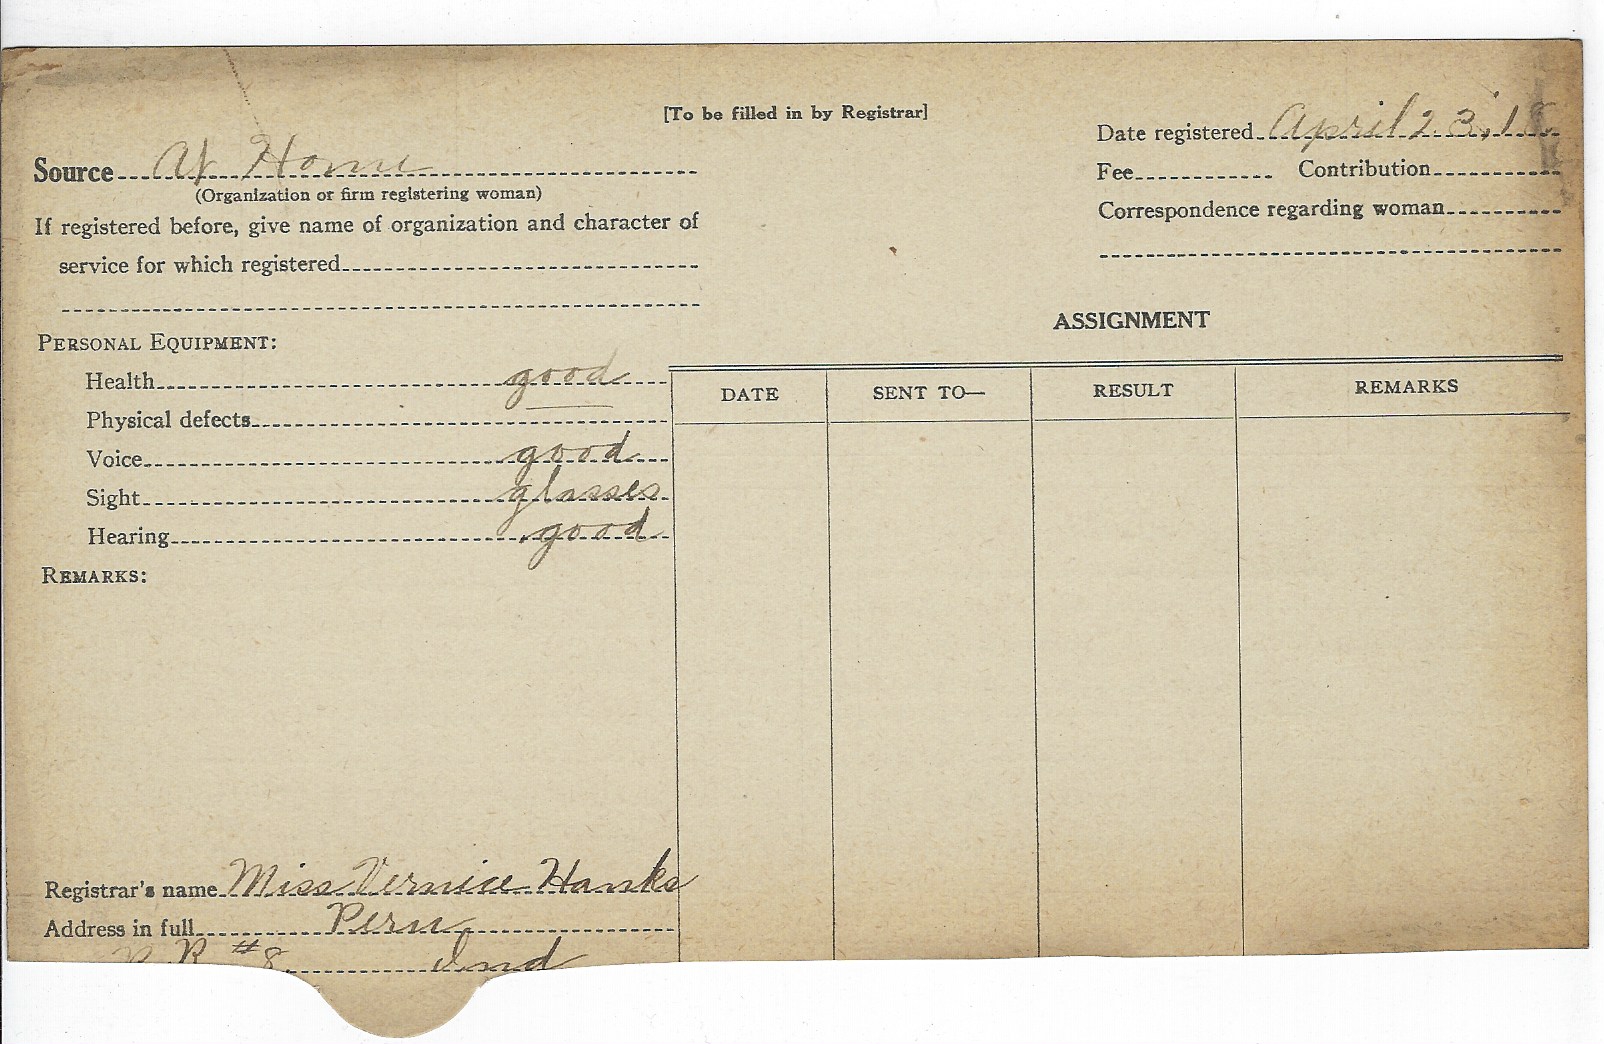 [To be filled in by Registrar]
Source At Home
(Organization or firm registering woman)
If registered before, give name of organization and character of
service for which registered
Date registered April 23, 18
Fee Contribution
Correspondence regarding woman
PERSONAL EQUIPMENT:
Health good
Physical defects
Voice good
Sight glasses
Hearing good
REMARKS:
ASSIGNMENT
DATE SENT TO— RESULT REMARKS
Registrar's name Miss Vernice Hanks
Address in full Peru
R R #8 Ind